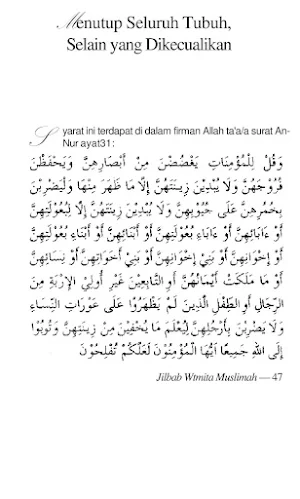 Menutup Seluruh Tubuh,
Selain yang Dikecualikan
Syarat ini terdapat di dalam firman Allah ta'a/a surat An-
Nur ayat31:
وَقُلْ لِلْمُؤْمِنَاتِ يَغْضُضْنَ مِنْ أَبْصَارِهِنَّ وَيَحْفَظْنَ
فُرُوْجَهُنَّ وَلَا يُبْدِيْنَ زِيْنَتَهُنَّ إِلَّا مَا ظَهَرَ مِنْهَا وَلْيَضْرِبْنَ
بِخُمُرِهِنَّ عَلَى جُيُوْبِهِنَّ وَلَا يُبْدِيْنَ زِيْنَتَهُنَّ إِلَّا لِبُعُوْلَتِهِنَّ
أَوْ ءَابَائِهِنَّ أَوْ ءَابَاءِ بُعُوْلَتِهِنَّ أَوْ أَبْنَائِهِنَّ أَوْ أَبْنَاءِ بُعُوْلَتِهِنَّ
أَوْ إِخْوَانِهِنَّ أَوْ بَنِيْ إِخْوَانِهِنَّ أَوْ بَنِيْ أَخَوَاتِهِنَّ أَوْ نِسَائِهِنَّ
أَوْ مَا مَلَكَتْ أَيْمَانُهُنَّ أَوِ التَّابِعِيْنَ غَيْرِ أُولِيْ الإِرْبَةِ مِنَ
الرِّجَالِ أَوِ الطِّفْلِ الَّذِيْنَ لَمْ يَظْهَرُوْا عَلَى عَوْرَاتِ النِّسَاءِ
وَلَا يَضْرِبْنَ بِأَرْجُلِهِنَّ لِيُعْلَمَ مَا يُخْفِيْنَ مِنْ زِيْنَتِهِنَّ وَتُوْبُوْا
إِلَى اللهِ جَمِيْعًا أَيُّهَا الْمُؤْمِنُوْنَ لَعَلَّكُمْ تُفْلِحُوْنَ
Jilbab Wtmita Muslimah — 47